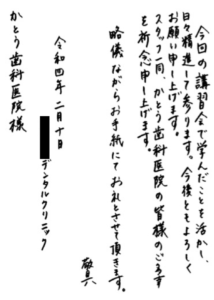 今回の講習会で学んだことを活かし、
日々精進して参ります。今後ともよろしく
お願い申し上げます。
スタッフ一同、かとう歯科医院の皆様のご
を祈念申し上げます。
略儀ながらお手紙にてお礼とさせて頂きます。
敬具
令和四年二月十日
デンタルクリニック
かとう歯科医院様